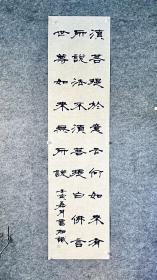 須菩提於意云何如來有
所說法不須菩提白佛言
世尊如來無所說